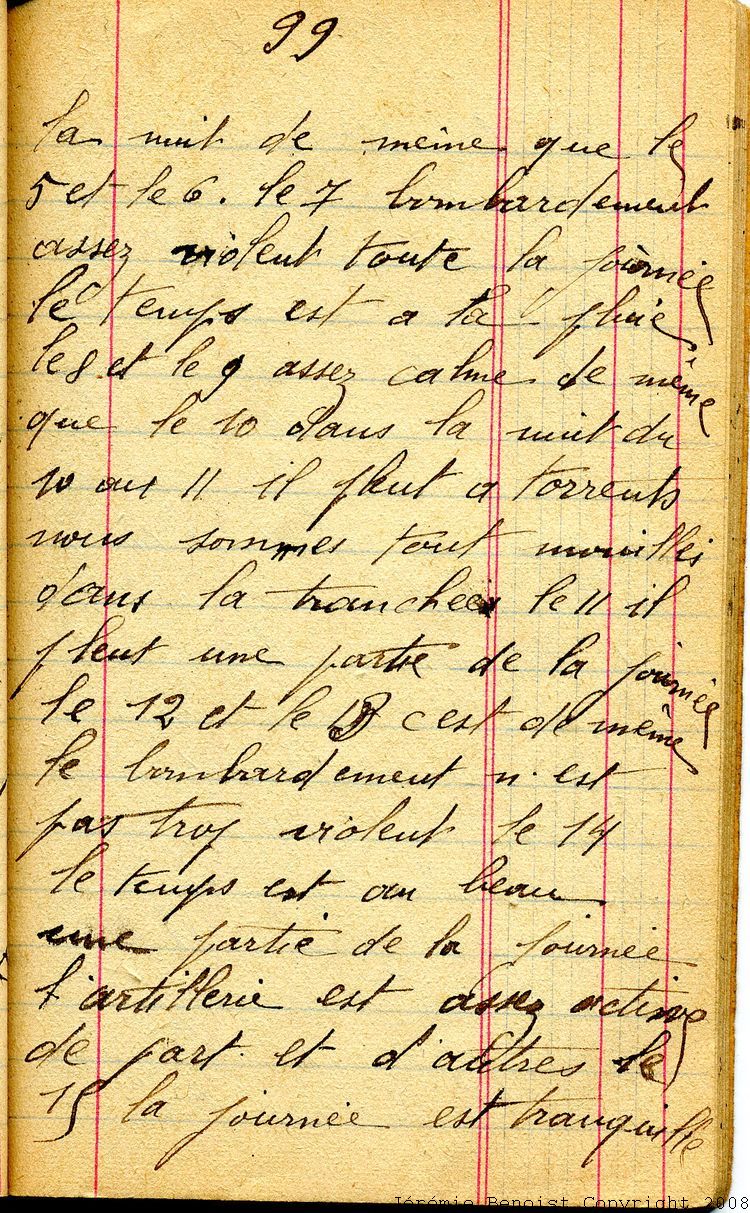 99
la nuit de même que le
5 et le 6. le 7 bombardement
assez violent toute la journée
le temps est a la pluie
le 8 et le 9 assez calme de même
que le 10 dans la nuit du
10 au 11 il pleut a torrents
nous sommes tout mouillés
dans la tranchée le 11 il
pleut une partie de la journée
le 12 et le 13 c'est de même
le bombardement n'est
pas trop violent le 14
le temps est au beau
une partie de la journée
l'artillerie est assez active
de part et d'autres le
15 la journée est tranquille
Jérémie Benoist Copyright 2008